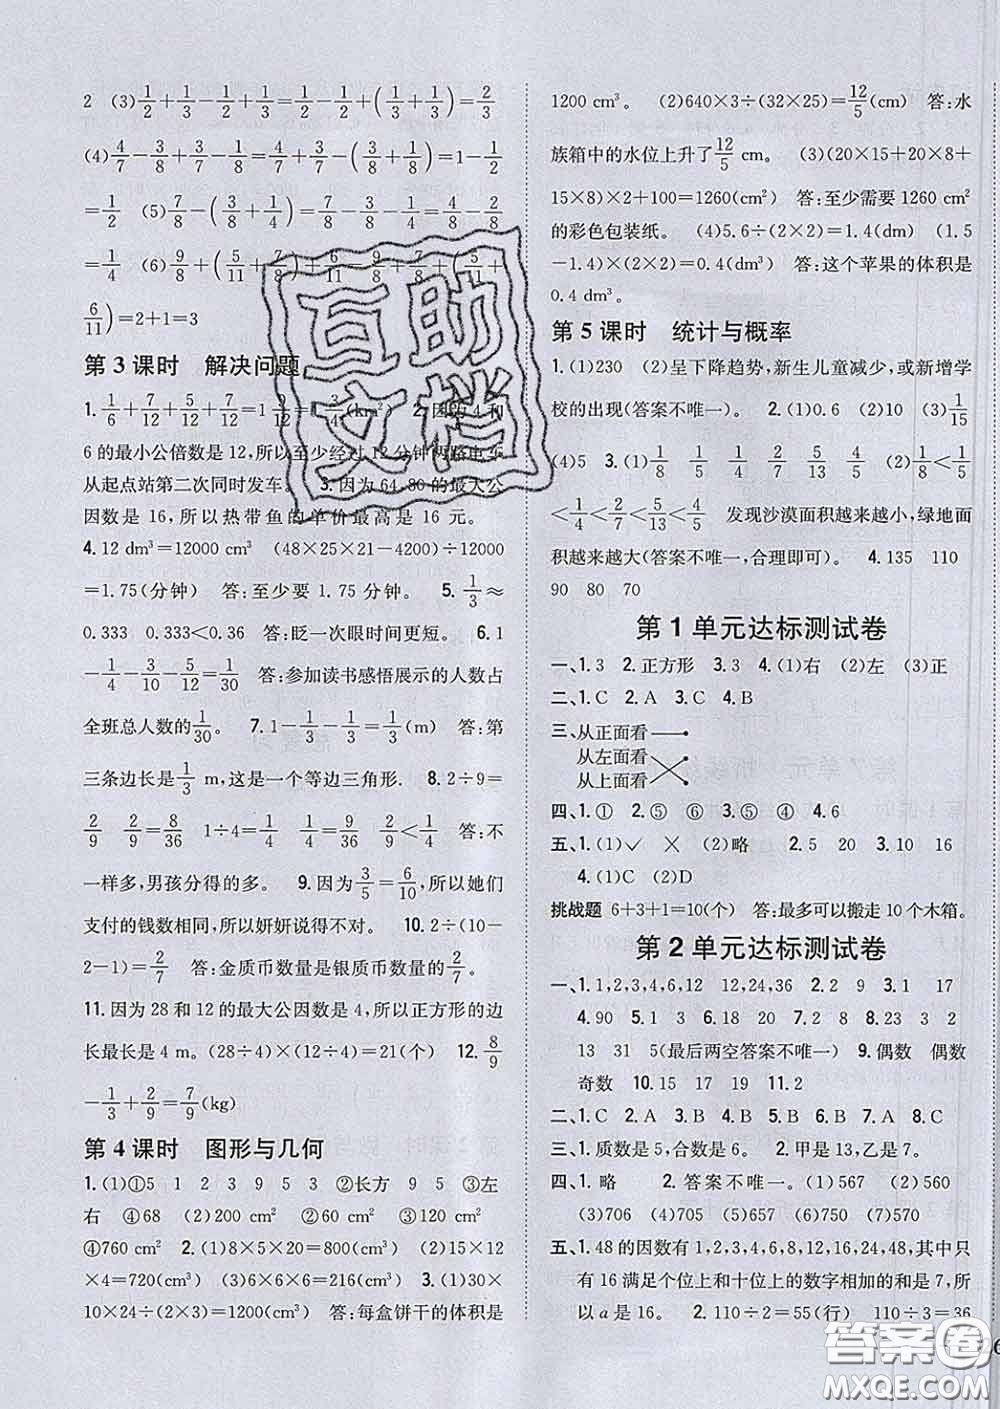 2 (3)1/2+1/3-1/2+1/3=1/2-1/2+(1/3+1/3)=2/3
(4)4/7-3/8+3/7-1/8=4/7+3/7-(3/8+1/8)=1-1/2
=1/2 (5)7/8-(3/8+1/4)=7/8-3/8-1/4=4/8-2/8
=1/4 (6)9/8+(5/11+7/8)+6/11=9/8+7/8+(5/11+
6/11)=2+1=3
第 3 课时 解决问题
1.1/6+7/12+5/12+7/12=1 9/12=1 3/4(km²) 2.因为 4 和
6 的最小公倍数是 12,所以至少经过 12 分钟两路电车
从起点站第二次同时发车。 3.因为 64,80 的最大公
因数是 16,所以热带鱼的单价最高是 16 元。
4.12 dm³=12000 cm³ (48×25×21-4200)÷12000
=1.75(分钟) 答:至少要 1.75 分钟。 5.1/3≈
0.333 0.333<0.36 答:眨一次眼时间更短。 6.1
-1/4-3/10-5/12=1/30 答:参加读书感悟展示的人数占
全班总人数的1/30。 7.1-1/3-1/3=1/3(m) 答:第
三条边长是1/3 m,这是一个等边三角形. 8.2÷9=
2/9 2/9=8/36 1÷4=1/4=9/36 2/9<1/4 答:不
一样多,男孩分得的多。 9.因为3/5=6/10,所以她们
支付的钱数相同,所以妍妍说得不对。 10.2÷(10-
2-1)=2/7 答:金质币数量是银质币数量的2/7。
11.因为 28 和 12 的最大公因数是 4,所以正方形的边
长最长是 4 m。(28÷4)×(12÷4)=21(个) 12.8/9
-1/3+2/9=7/9(kg)
第 4 课时 图形与几何
1.(1)①5 1 2 3 9 5 3 ②长方 9 5 ③左
右 ④68 (2)200 cm² ②60 cm² ③120 cm²
④760 cm² 2.(1)8×5×20=800(cm³) (2)15×12
×4=720(cm³) (3)6×6×6=216(cm³) 3.(1)30×
10×24÷(2×3)=1200(cm³) 答:每盒饼干的体积是
1200 cm³。 (2)640×3÷(32×25)=12/5(cm) 答:水
族箱中的水位上升了12/5 cm。 (3)(20×15+20×8+
15×8)×2+100=1260(cm²) 答:至少需要 1260 cm²
的彩色包装纸。 (4)5.6÷(2×2)=1.4(dm) (1.5
-1.4)×(2×2)=0.4(dm³) 答:这个苹果的体积是
0.4 dm³。
第 5 课时 统计与概率
1.(1)230 (2)呈下降趋势,新生儿童减少,或新增学
校的出现(答案不唯一)。 2.(1)0.6 (2)10 (3)1/15
(4)5 3.(1)1/8 1/5 1/4 2/7 5/13 4/5 (2)1/8<1/5
<1/4<2/7<5/13<4/5 发现沙漠面积越来越小,绿地面
积越来越大(答案不唯一,合理即可)。 4.135 110
90 80 70
第 1 单元达标测试卷
一、1.3 2.正方形 3.3 4.(1)右 (2)左 (3)正
二、1.C 2.A 3.C 4.B
三、从正面看
从左面看
从上面看
四、1.① 2.⑤ ⑥ 3.⑤ ② 4.6
五、1.(1)✓ × (2)略 2.5 4 3.10 16
4.(1)C (2)D
挑战题 6+3+1=10(个) 答:最多可以搬走 10 个木箱。
第 2 单元达标测试卷
一、1.1,2,3,4,6,12 12,24,36 2.2 9 3.1 17
4.90 5.1 3 6.18 20 7.2 8 8.23 3 2
13 31 5(最后两空答案不唯一) 9.偶数 偶数
奇数 10.15 17 19 11.2
二、1.C 2.A 3.C 4.B 5.B 6.B 7.A 8.C
三、1.质数是 5,合数是 6。 2.甲是 13,乙是 7。
四、1.略 2.答案不唯一。(1)567 (2)560
(3)706 (4)705 (5)657 (6)750 (7)570
五、1.48 的因数有 1,2,3,4,6,8,12,16,24,48,其中只
有 16 满足个位上和十位上的数字相加的和是 7,所
以 a 是 16。 2.110÷2=55(行) 110÷3=36
互助
文档
答案圈
MXQE.COM
6